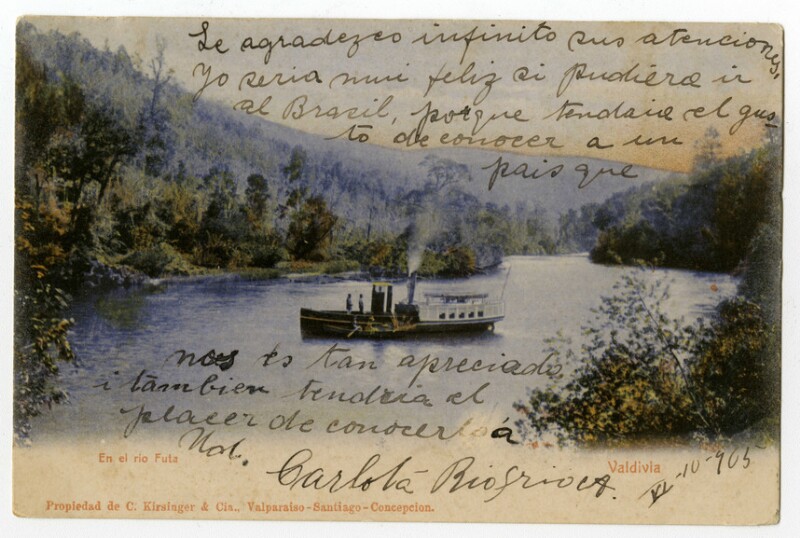 Le agradezco infinito sus atenciones,
Yo seria mui feliz si pudiera ir
al Brasil, porque tendria el gus
to de conocer a un
pais que
nos es tan apreciado
i tambien tendria el
placer de conocerla a
Carlota
En el rio Futa
Valdivia
XI-10-905
Propiedad de C. Kirsinger & Cia., Valparaiso-Santiago-Concepcion.